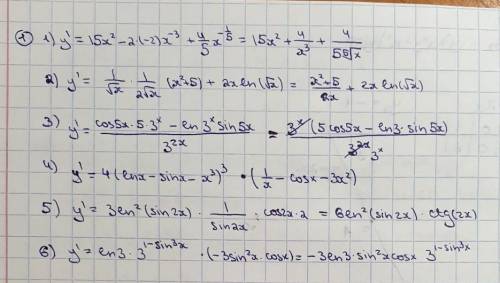 ① 1) y' = 15x² - 2·(-2)x⁻³ + 4/5 x^(-1/5) = 15x² + 4/x³ + 4/(5 ⁵√x)
2) y' = 1/√x · 1/(2√x) (x²+5) + 2x ln(√x) = (x²+5)/(2x) + 2x ln(√x)
3) y' = (cos5x·5·3ˣ - ln3·3ˣ sin5x)/3²ˣ = 3ˣ(5cos5x - ln3·sin5x)/(3²ˣ 3ˣ)
4) y' = 4(lnx - sinx - x³)³ · (1/x - cosx - 3x²)
5) y' = 3ln²(sin2x) · 1/sin2x · cos2x·2 = 6ln²(sin2x)·ctg(2x)
6) y' = ln3·3^(1-sin³x) · (-3sin²x·cosx) = -3ln3·sin²x cosx 3^(1-sin³x)